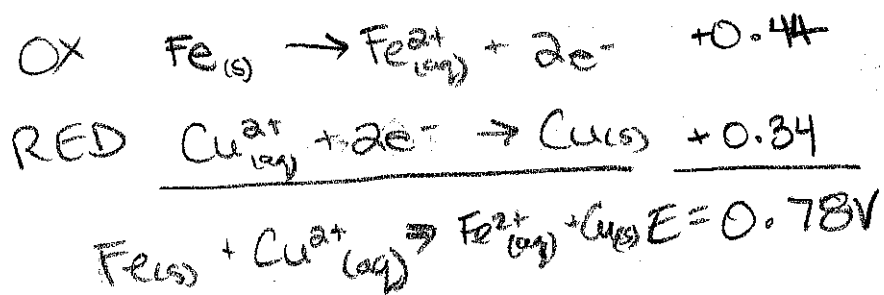 OX Fe(s) → Fe²⁺(aq) + 2e⁻ +0.44
RED Cu²⁺(aq) + 2e⁻ → Cu(s) +0.34
Fe(s) + Cu²⁺(aq) → Fe²⁺(aq) + Cu(s) E = 0.78V